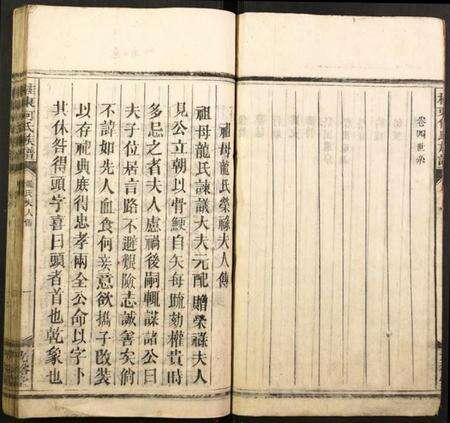 卷四世系
祖母龍氏榮祿夫人傳
祖母龍氏諫議大夫元配贈榮祿夫人
見公立朝以骨鯁自矢每疏劾權貴時
多忌之者夫人慮禍後嗣輒謀諸公曰
夫子位居言路不避艱險志誠善矣倘
不諱如先人血食何妾意欲攜子改裝
以存祀典庶得忠孝兩全公命以字卜
其休咎得頭字喜曰頭者首也乾象也
桂東何氏族譜
龍氏夫人傳